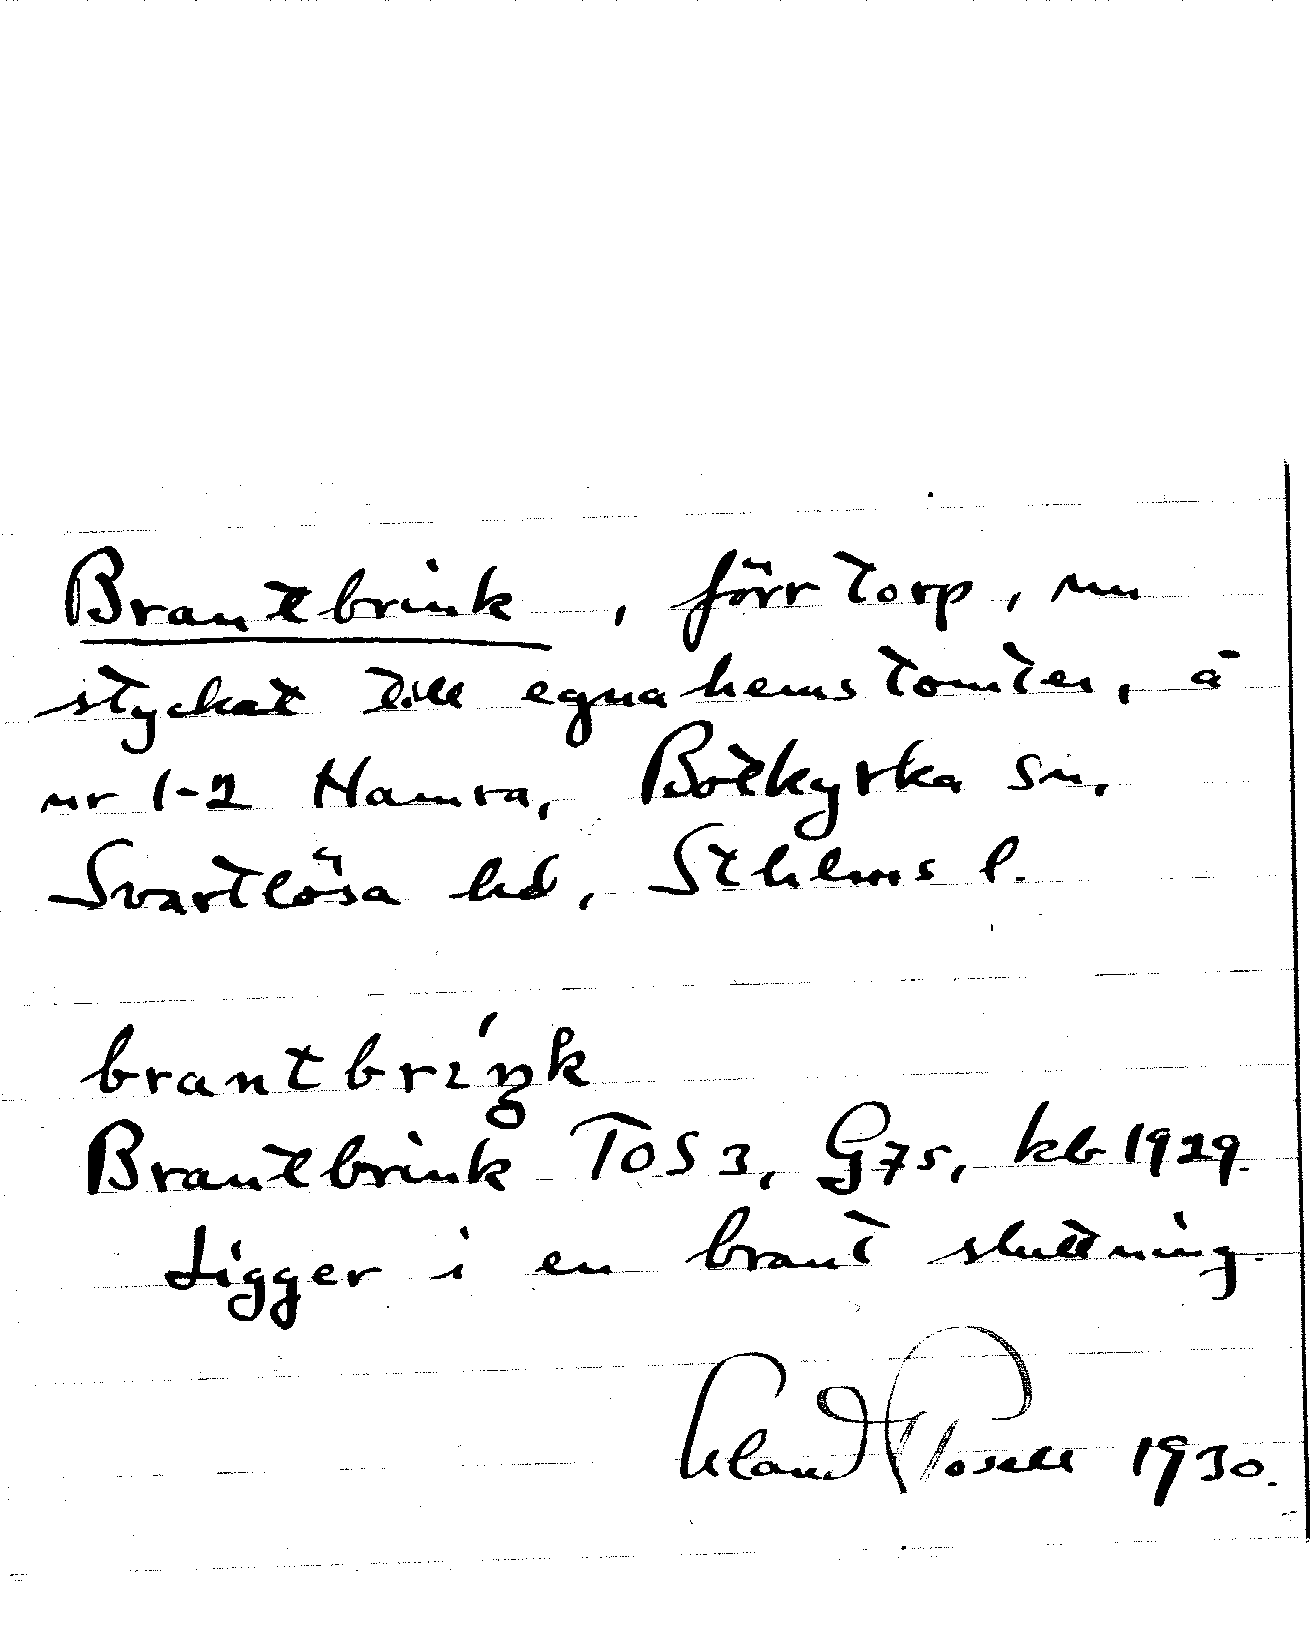 Brantbrink, förr torp, nu
styckat till egnahemstomter, å
nr 1-2 Hamra, Botkyrka sn,
Svartlösa hd, Sthlms l.
brantbrıńk
Brantbrink TOS 3, G75, kb 1929.
Ligger i en brant sluttning.
Erland Rosell 1930.